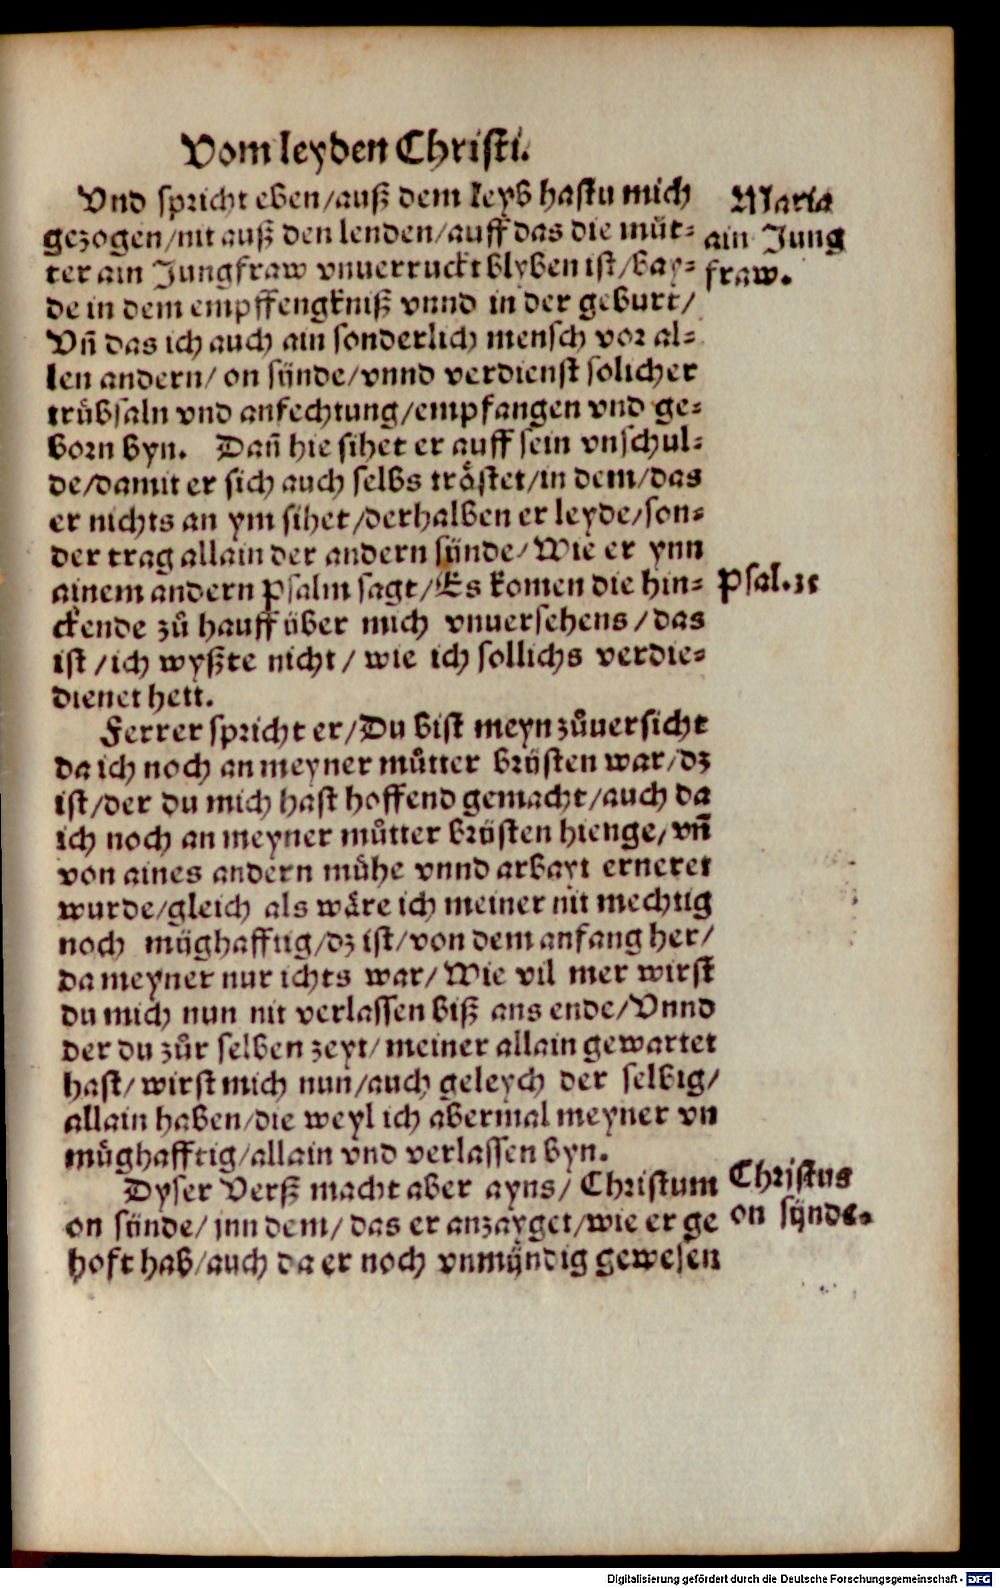 Vom leyden Christi.
Vnd spricht eben/auß dem leyb hastu mich
gezogen/nit auß den lenden/auff das die muͤt-
ter ain Jungfraw vnuerruckt blyben ist/bay-
de in dem empffengkniß vnnd in der geburt/
Vn̄ das ich auch ain sonderlich mensch vor al-
len andern/ on sünde/vnnd verdienst solicher
truͤbsaln vnd anfechtung/empfangen vnd ge-
born byn. Dan̄ hie sihet er auff sein vnschul-
de/damit er sich auch selbs troͤstet/in dem/das
er nichts an ym sihet/derhalben er leyde/son-
der trag allain der andern sünde/ Wie er ynn
ainem andern Psalm sagt/Es komen die hin-
ckende zuͦ hauff über mich vnuersehens/das
ist/ich wyßte nicht/ wie ich sollichs verdie-
dienet hett.
Ferrer spricht er/Du bist meyn zuͦuersicht
da ich noch an meyner muͦtter brüsten war/dz
ist/der du mich hast hoffend gemacht/auch da
ich noch an meyner muͦtter brüsten hienge/vn̄
von aines andern muͤhe vnnd arbayt erneret
wurde/gleich als waͤre ich meiner nit mechtig
noch müghafftig/dz ist/von dem anfang her/
da meyner nur ichts war/Wie vil mer wirst
du mich nun nit verlassen biß ans ende/Vnnd
der du zuͦr selben zeyt/meiner allain gewartet
hast/wirst mich nun/auch geleych der selbig/
allain haben/die weyl ich abermal meyner vn
muͤghafftig/allain vnd verlassen byn.
Dyser Verß macht aber ayns/ Christum
on sünde/ jnn dem/ das er anzayget/wie er ge
hoft hab/auch da er noch vnmündig gewesen
Maria
ain Jung
fraw.
Psal.
Christus
on sünde.
Digitalisierung gefördert durch die Deutsche Forschungsgemeinschaft - DFG